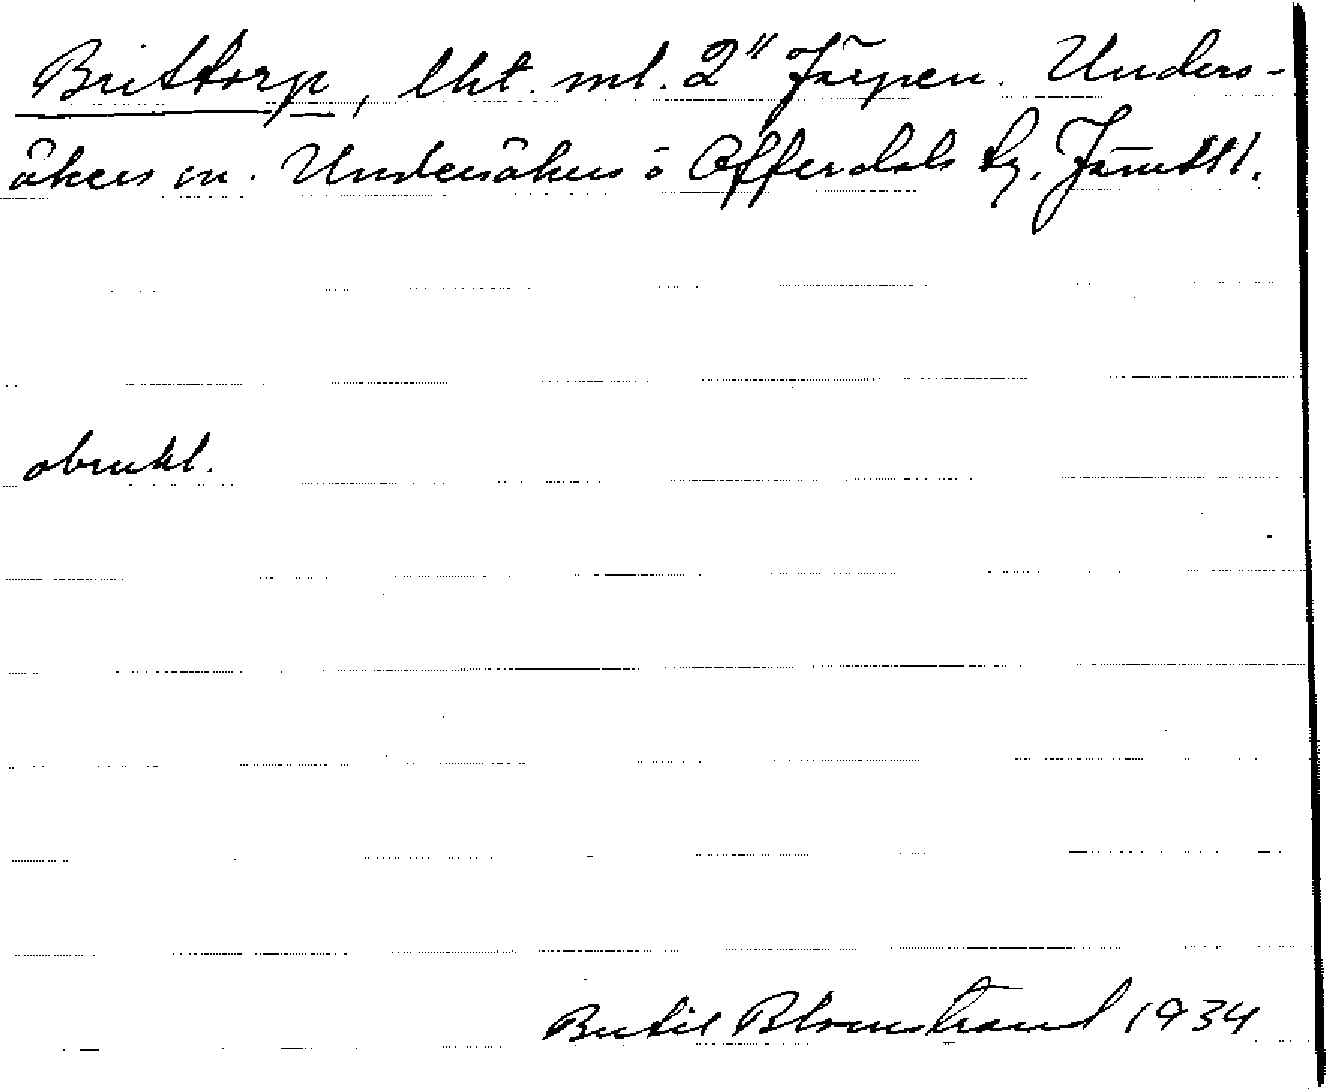 Brittorp, lht. ml. 2" Järpen. Unders-
åkers sn. Undersåkers o Offerdals tg. Jämtl l.
obrukl.
Bertil Blomstrand 1934